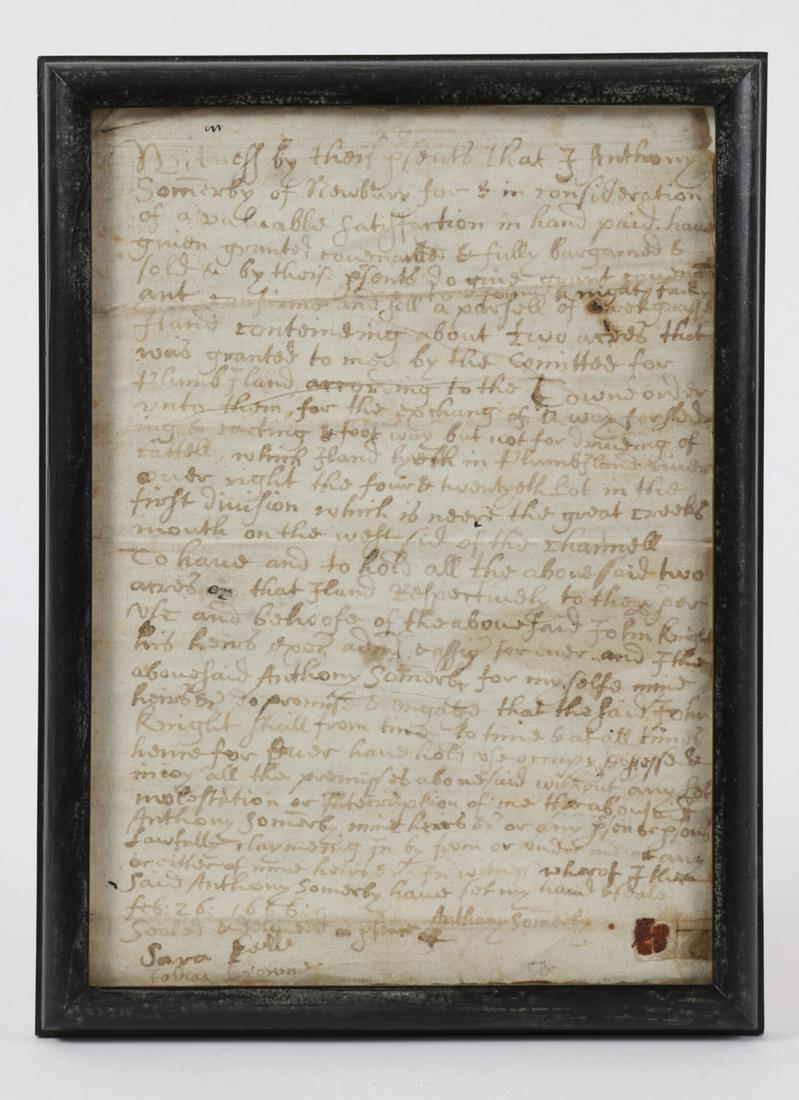 Witness by theis psents that I Anthony
Somerby of Newbury for & in consideration
of a valuable satisfaction in hand paid have
given granted covenanted & fully bargained &
sold & by theis psents do give grant coven
to John Knight
ant confirme and sell a parsell of
Iland conteineing about two acres that
was granted to mee by the Comittee for
Plumb Iland according to the Towne order
unto them, for the exchang of a way for
ing & carting & foot way but not for of
cattell, which Iland lyeth in Plumb Iland river
over right the four & twentyeth Lot in the
first division which is neere the great creeks
mouth on the west sid of the channell
To have and to hold all the abovesaid two
acres or that Iland Respectively to the
use and behoofe of the abovesaid John Knight
his heirs exec adm & assigs for ever and I the
abovesaid Anthony Somerby for my selfe mine
heirs &c do promise & engage that the said John
Knight shall from time to time & at all times
hence for Ever have hold use occupy possesse &
injoy all the premisses abovesaid without any Let
molestation or Interruption of me the abovesaid
Anthony Somerby mine heires &c or any
Lawfully claymeing in by from or under me or any
or either of mine heirs &c. In witnes wherof I the
said Anthony Somerby have set my hand & seale
feb: 26: 1666:
Sealed & delivered in psence Anthony Somerby
Sara
Joshua Browne